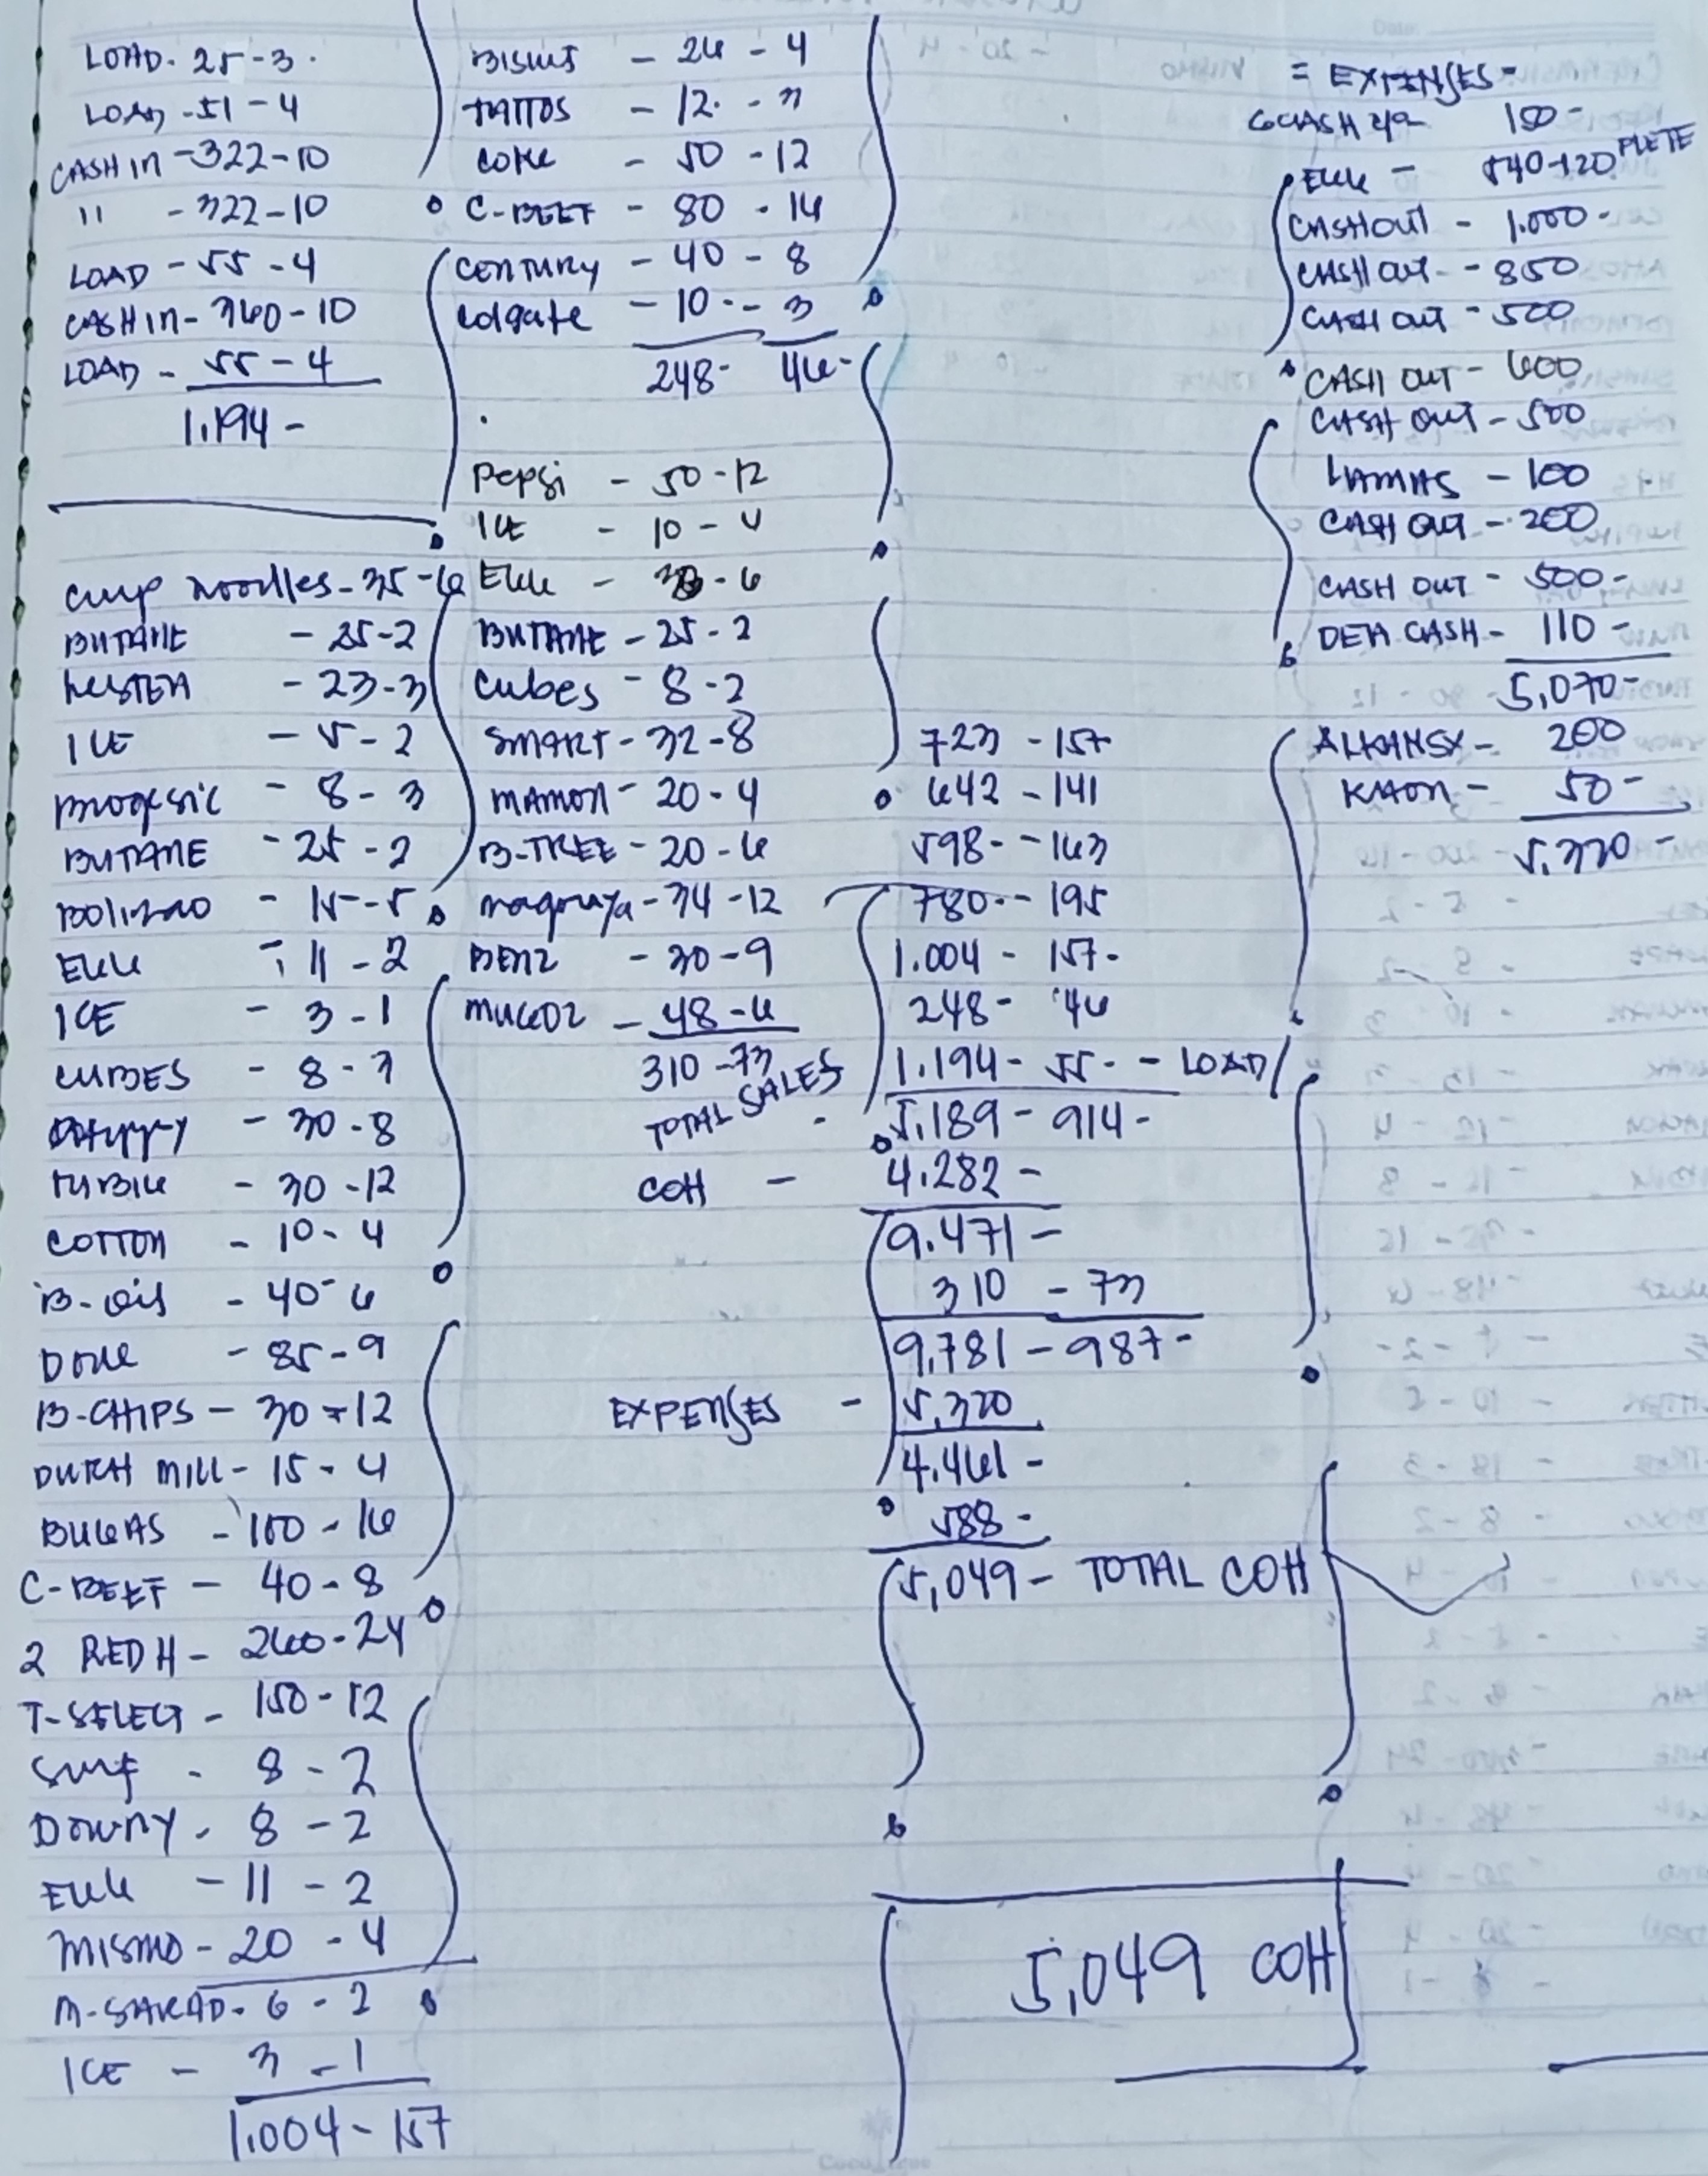 LOAD - 25 - 3
LOAD - 51 - 4
CASH in - 322 - 10
11 - 322 - 10
LOAD - 55 - 4
CASH in - 360 - 10
LOAD - 55 - 4
1.194 -
cup noodles - 35 - 6
BUTANE - 25 - 2
- 23 - 3
ICE - 5 - 2
- 8 - 3
BUTANE - 25 - 2
- 15 - 5
EGG - 11 - 2
ICE - 3 - 1
CUBES - 8 - 3
- 30 - 8
- 30 - 12
COTTON - 10 - 4
B-oil - 40 - 6
- 85 - 9
B-CHIPS - 30 - 12
DUTCH MILL - 15 - 4
BUGAS - 100 - 16
C-BEEF - 40 - 8
2 RED H - 260 - 24
T-SELECT - 150 - 12
Surf - 8 - 2
Downy - 8 - 2
EGG - 11 - 2
MISMO - 20 - 4
6 - 2
ICE - 3 - 1
1.004 - 157
- 26 - 4
TATTOS - 12 - 3
COKE - 50 - 12
C-BEEF - 80 - 16
CENTURY - 40 - 8
Colgate - 10 - 3
248 - 46 -
Pepsi - 50 - 12
ICE - 10 - 4
EGG - 6
BUTANE - 25 - 2
Cubes - 8 - 2
SMART - 32 - 8
MAMON - 20 - 4
B-TREE - 20 - 6
- 34 - 12
- 30 - 9
- 48 - 6
310 - 73
723 - 157
642 - 141
598 - 163
780 - 195
1.004 - 157 -
248 - 46
1.194 - 55 - LOAD
TOTAL SALES - 5.189 - 914 -
COH - 4.282 -
9.471 -
310 - 73
9,781 - 987 -
EXPENSES - 5,320
4.461 -
588 -
5,049 - TOTAL COH
5,049 COH
= EXPENSES -
GCASH 150 -
EGG - 540 - 120 PLETE
CASH OUT - 1.000 -
CASH OUT - 850
CASH OUT - 500
CASH OUT - 600
CASH OUT - 500
LAMAS - 100
CASH OUT - 200
CASH OUT - 500 -
CASH - 110 -
5,070 -
ALKANSY - 200
KAON - 50 -
5,320 -